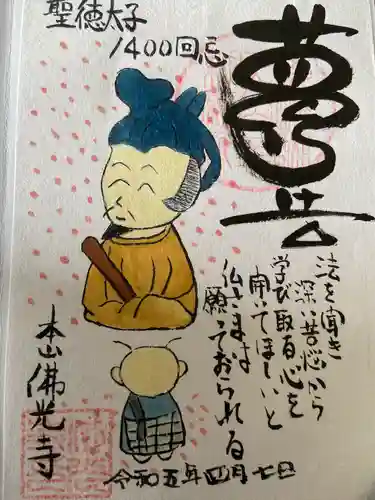 聖徳太子
1400回忌
法を聞き
深い苦悩から
学び取る心を
開いてほしいと
仏さまは
願っておられる
本山佛光寺
令和五年四月七日